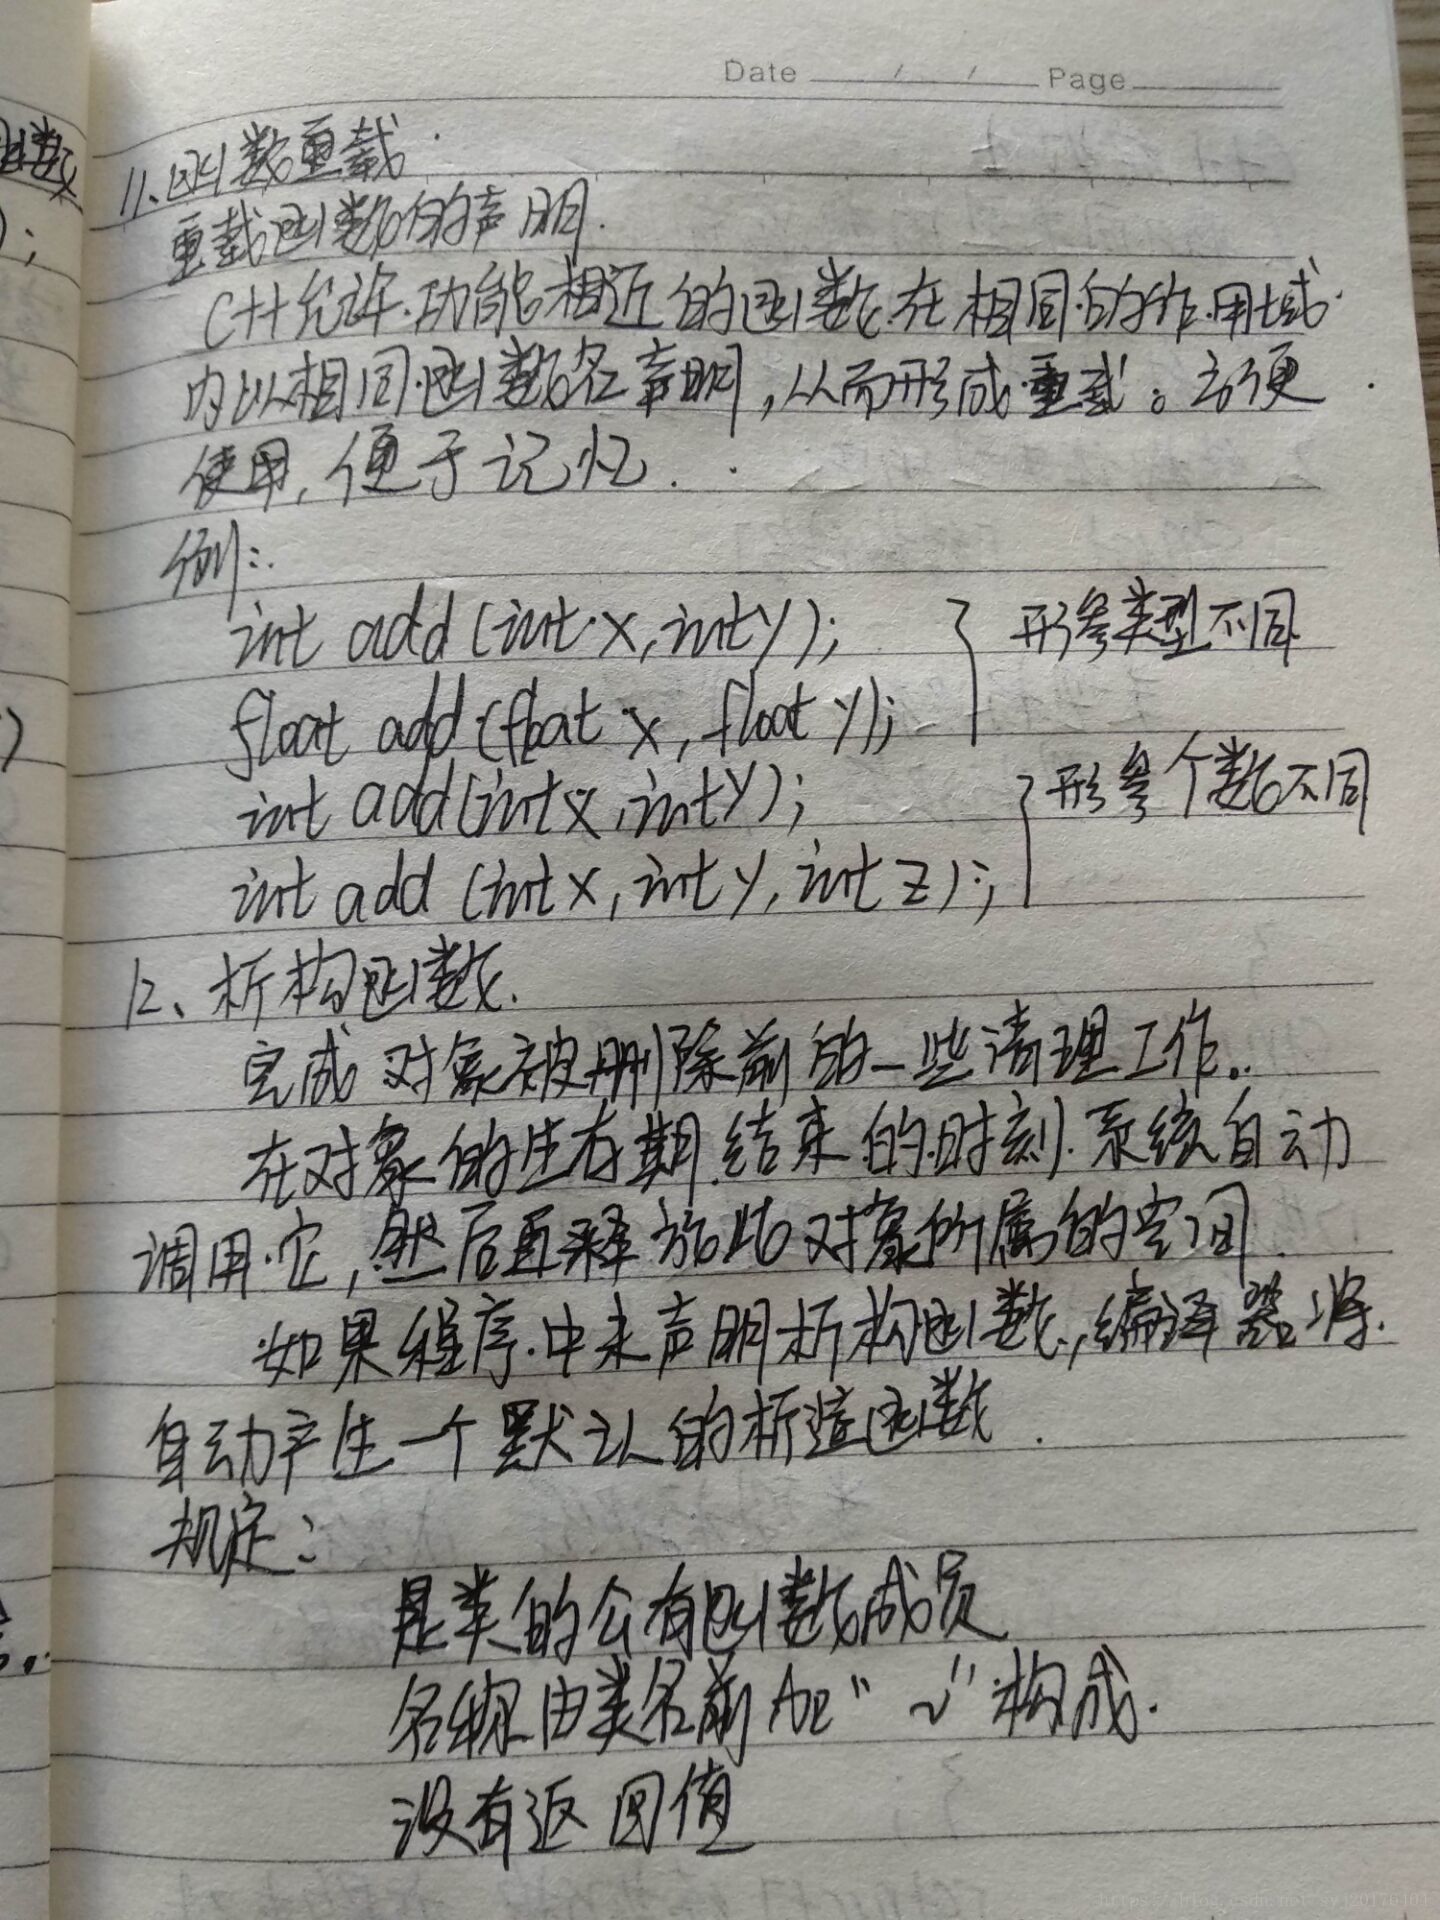 Date / / Page
11、函数重载
重载函数的声明.
C++允许功能相近的函数在相同的作用域
内以相同函数名声明,从而形成重载。方便
使用,便于记忆.
例:
int add (int x,int y);
形参类型不同
float add(float x, float y);
int add(int x,int y);
形参个数不同
int add (int x, int y, int z);
12、析构函数.
完成对象被删除前的一些清理工作.
在对象的生存期结束的时刻.系统自动
调用它,然后再释放此对象所属的空间.
如果程序中未声明析构函数,编译器将
自动产生一个默认的析造函数.
规定:
是类的公有函数成员
名称由类名前加“~”构成.
没有返回值